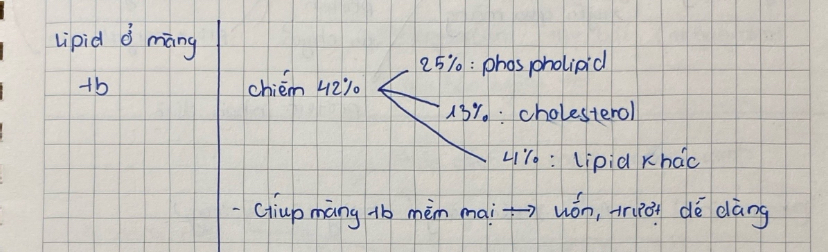 Lipid ở màng
tb
chiếm 42%
25% : phospholipid
13% : cholesterol
4% : lipid khác
- Giúp màng tb mềm mại → uốn, trượt dễ dàng